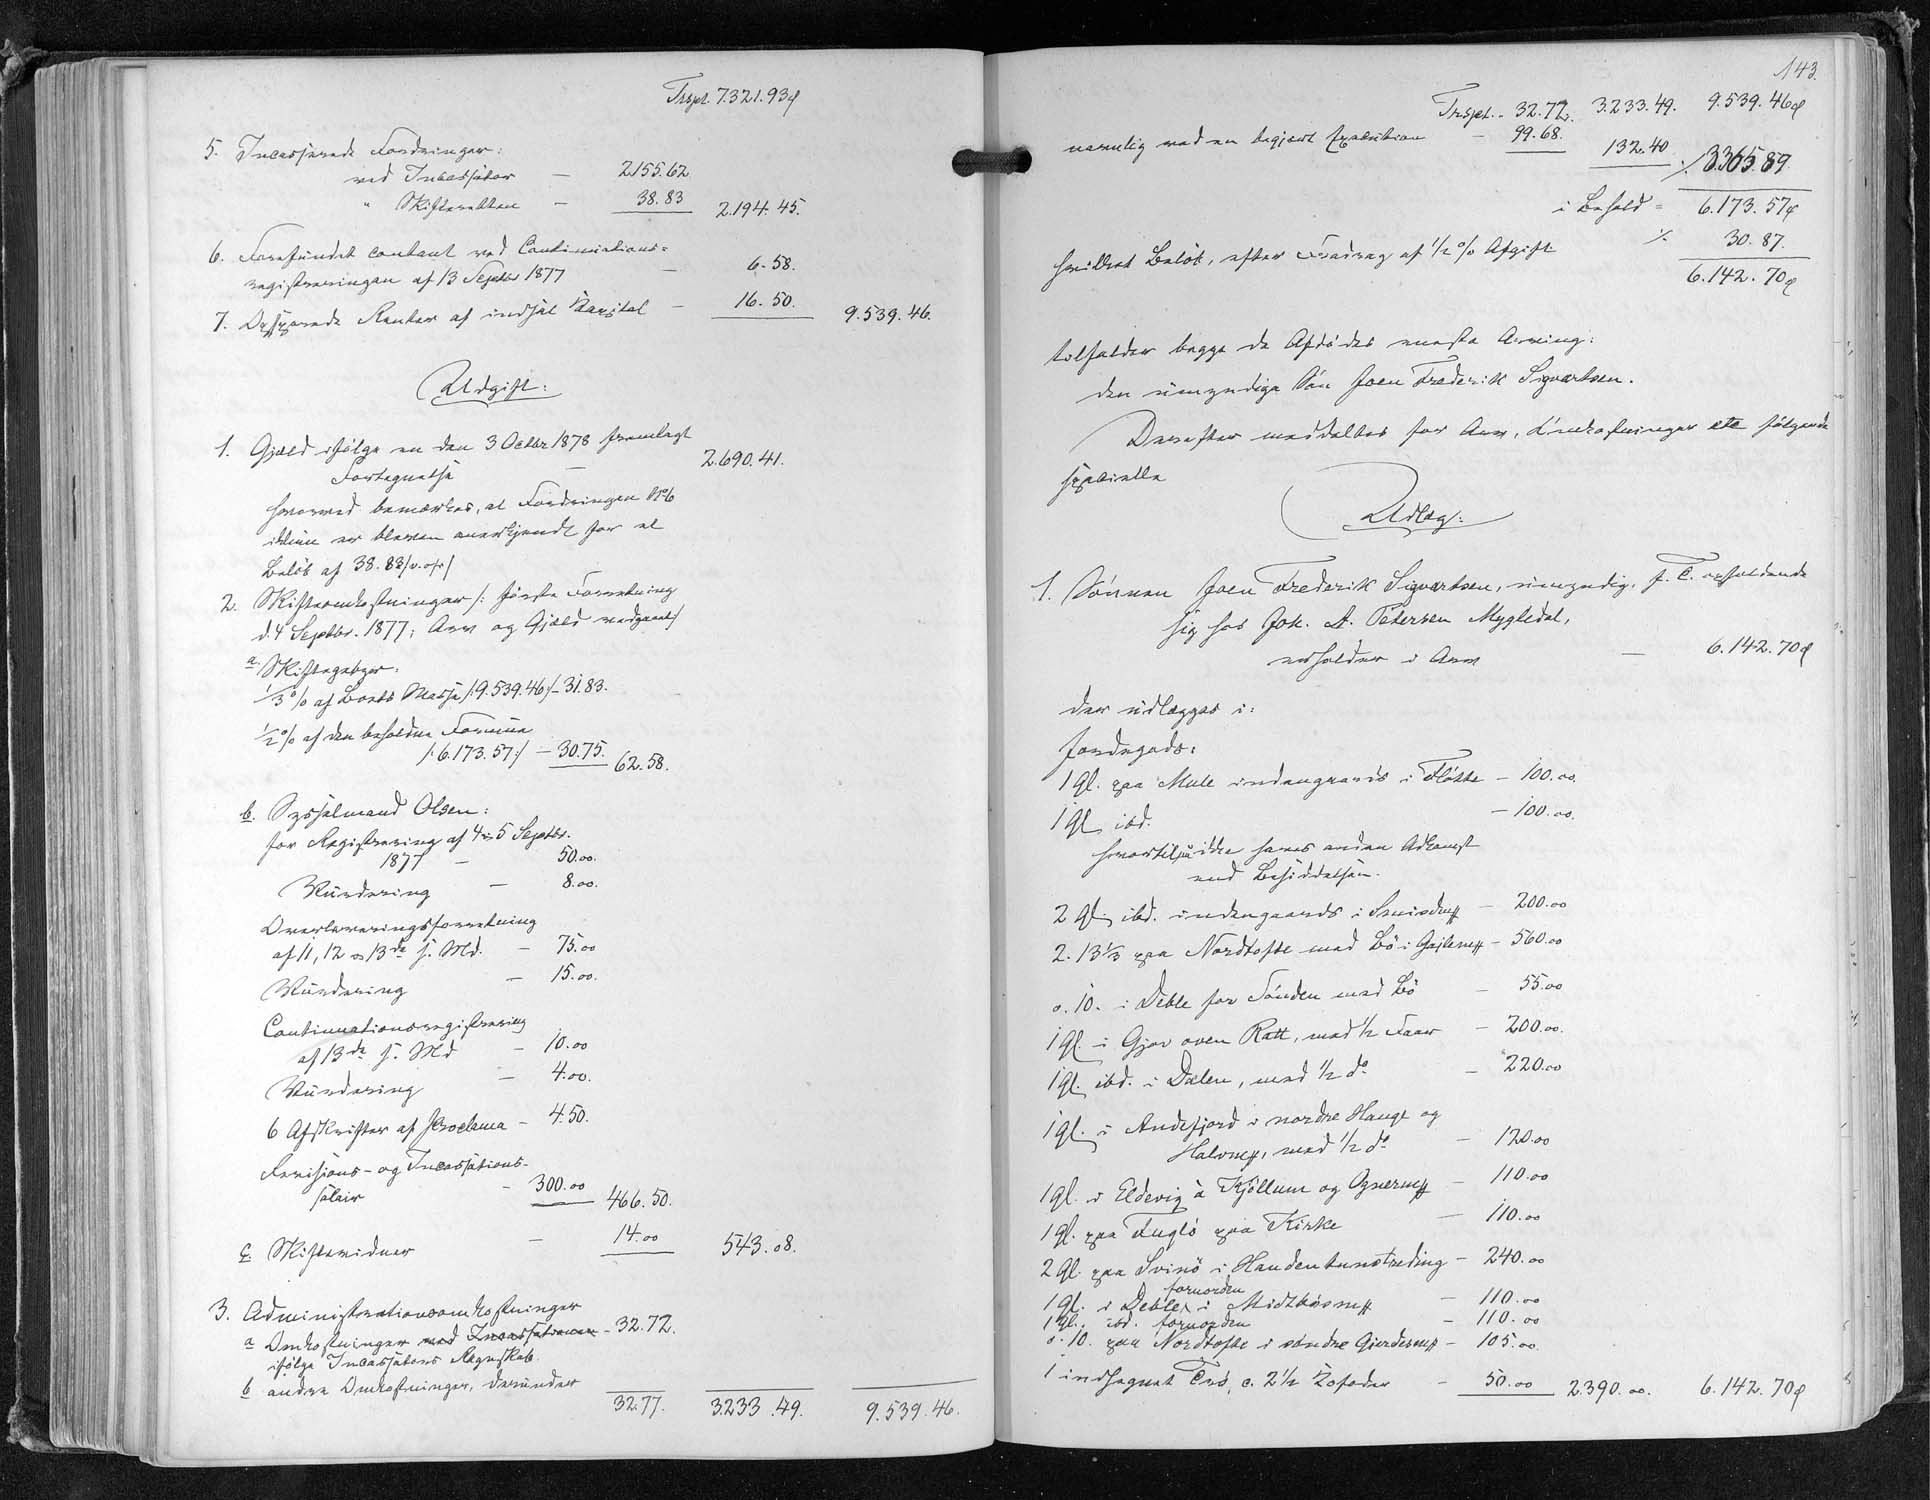 Trspt. 7.321.93 ₰
5. Incasserede Fordringer:
ved Incassator — 2155.62
" Skifteretten — 38.83 2.194.45.
6. Forefundet contant ved Continuations=
registreringen af 13 Septbr 1877 — 6.58.
7. Opsparede Renter af indsat Kapital — 16.50. 9.539.46.
Udgift:
1. Gjæld ifølge en den 3 Octbr 1878 fremlagt
Fortegnelse — 2.690.41.
hvorved bemærkes, at Fordringen No 6
ikkun er bleven anerkjendt for et
Beløb af 38.83
2. Skifteomkostninger /: første Forretning
d. 4 Septbr. 1877; Arv og Gjæld vedgaaet/
a. Skiftegebyr:
1/3 % af Boets Masse /: 9.539.46 :/ – 31.83.
1/2 % af den beholdne Formue
/: 6.173.57 :/ — 30.75. 62.58.
b. Sysselmand Olsen:
for Registrering af 4 og 5 Septbr.
1877 — 50.00.
Vurdering — 8.00.
Overleveringsforretning
af 11, 12 og 13de s. Md. — 75.00
Vurdering — 15.00.
Continuationsregistrering
af 13de s. Md — 10.00
Vurdering — 4.00.
6 Afskrifter af Proclama – 4.50.
Revisions- og Incassations-
salair – 300.00 466.50.
c. Skiftevidner — 14.00 543.08.
3. Administrationsomkostninger
a Omkostninger ved Incassationen – 32.72.
ifølge Incassators Regnskab.
b andre Omkostninger, derunder
32.77. 3233.49. 9.539.46.
143.
Trspt. – 32.72. 3.233.49. 9.539.46 ₰
navnlig ved en begjært Execution — 99.68. 132.40 ./. 3365.89.
i Behold = 6.173.57 ₰
hvilket Beløb, efter Fradrag af 1/2 % Afgift ./. 30.87.
6.142.70 ₰
tilfalder begge de Afdødes eneste Arving:
den umyndige Søn Joen Frederik Sigvartsen.
Derefter meddeltes for Arv, Omkostninger etc følgende
specielle
Udlæg:
1. Sønnen Joen Frederik Sigvartsen, umyndig, p. t. opholdende
sig hos Joh. A. Petersen Mygledal,
erholder i Arv — 6.142.70 ₰
der udlægges i:
Jordegods:
1 Gl. paa Mule indengaards i Fløtte – 100.00.
1 Gl. ibd. – 100.00.
hvortil ikke haves anden Adkomst
end Besiddelsen.
2 Gl. ibd. indengaards i – 200.00
2. 13 1/3 paa Nordtofte med Bø i – 560.00
0. 10. i Deble for Sønden med Bø – 55.00
1 Gl. i Gjov oven Ratt, med 1/2 Faar – 200.00.
1 Gl. ibd. i Dalen, med 1/2 do – 220.00
1 Gl. i Andefjord i nordre Hauge og
med 1/2 do – 120.00
1 Gl. i Eldevig à Kjøllum og – 110.00
1 Gl. paa Fuglø paa Kirke – 110.00
2 Gl. paa Svinø i Handentunstreding – 240.00
1 Gl. i Deble fornorden i – 110.00
1 Gl. ibd. fornorden – 110.00
0. 10. paa Nordtofte i søndre – 105.00.
1 indhegnet Trø, c. 2 1/2 – 50.00 2390.00. 6.142.70 ₰